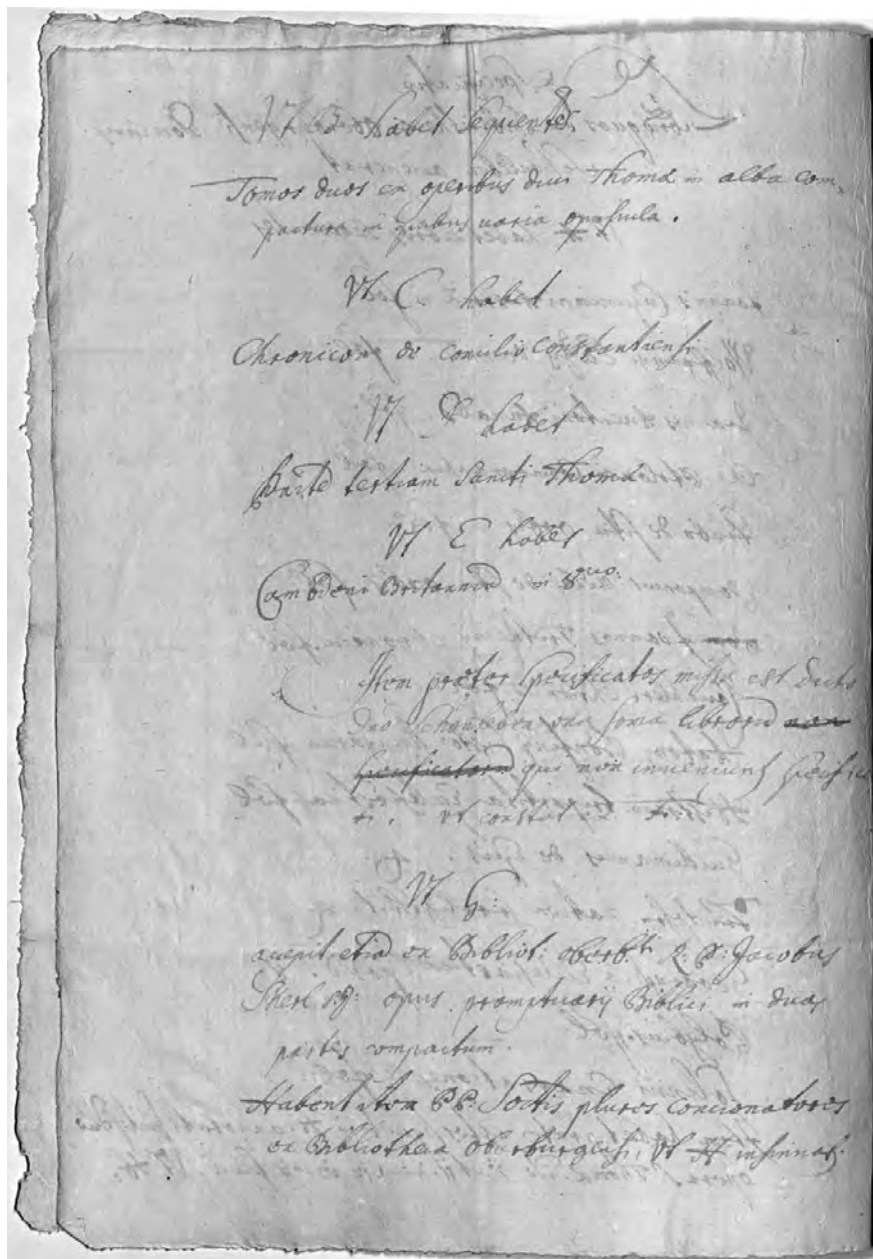 Vt B habet sequentes
Tomos duos ex operibus divi Thomæ in alba com-
pactura in quibus varia opuscula.
Vt C habet
Chronicon de concilio constantiensi
Vt D habet
Parte tertiam Sancti Thomæ
Vt E habet
Cambdeni Britannia in 8uo:
Item præter specificatos missa est dicto
Dno librorū non
specificatorū qui non inveniunt specifica
ti, vt constat
Vt G:
accepit etiā ex Bibliot: oberb:ti R: P: Jacobus
opus promptuarij Biblici in duas
partes compactum.
Habent item PP: Soctis plures concionatores
ex Bibliotheca oberburgensi, vt H insinuat.